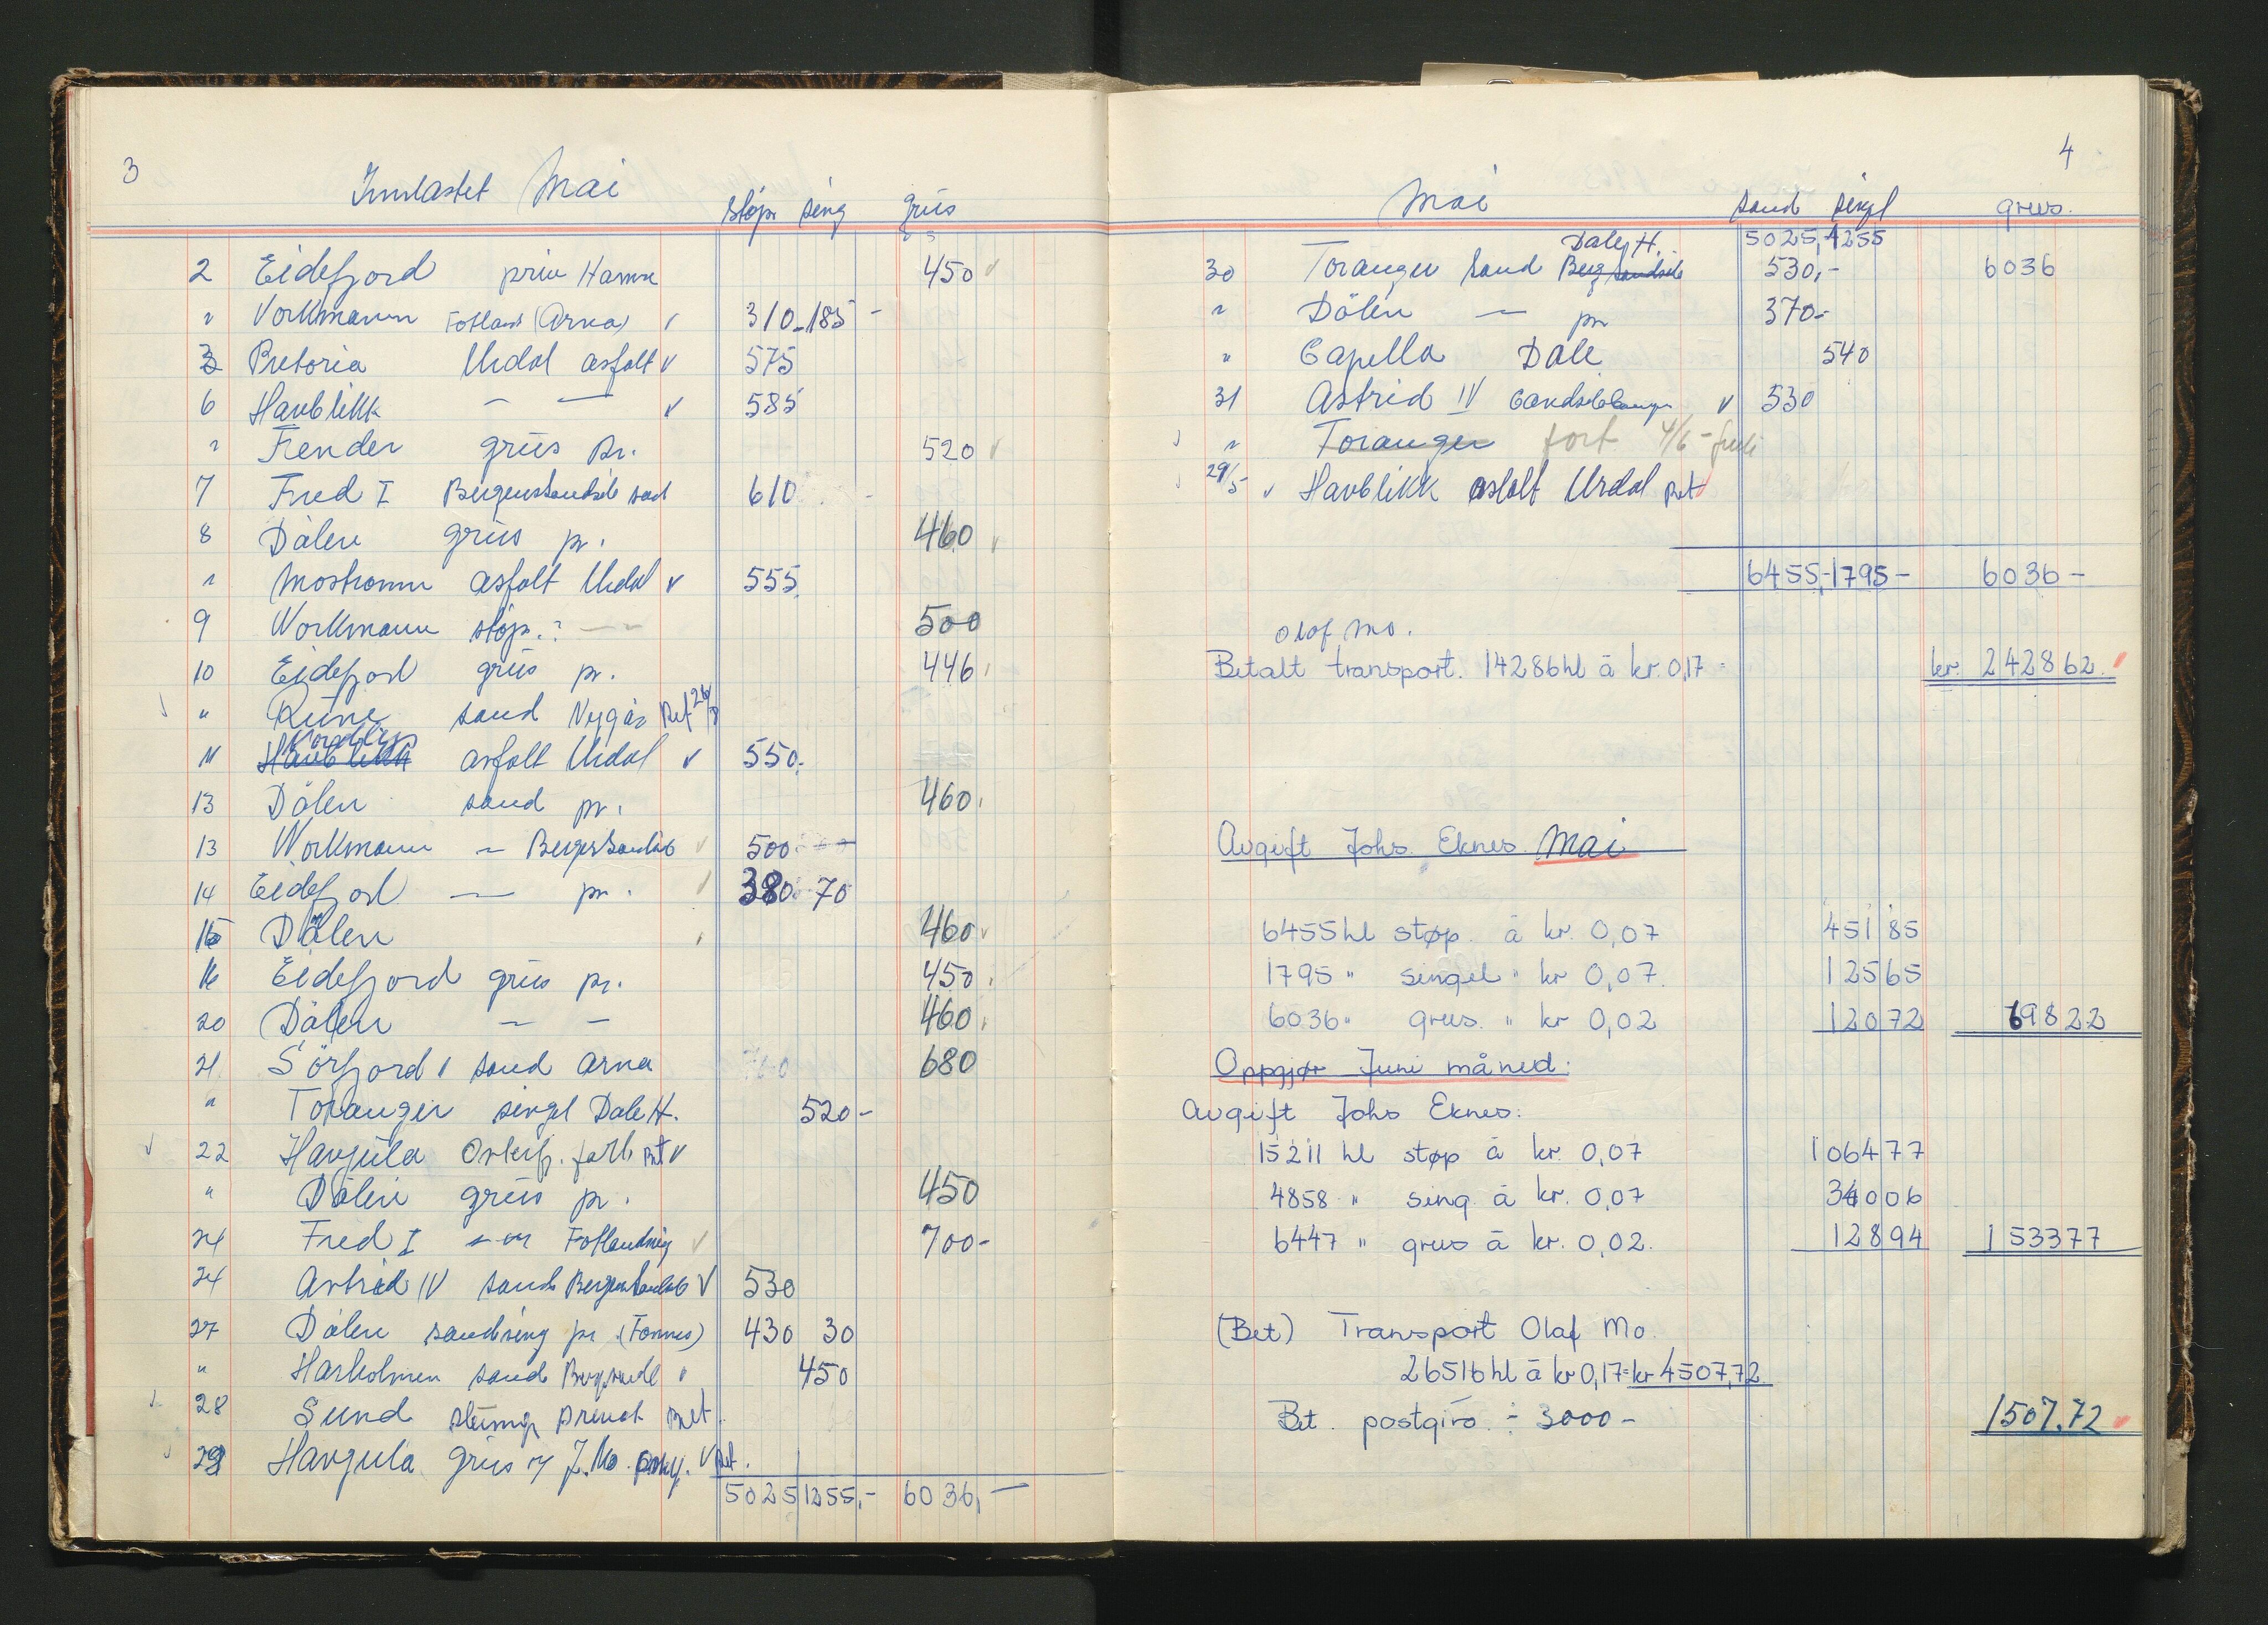 3
Innlastet Mai
støp sing grus
2 Eidefjord priv Hamre 450 v
" Workmann Fotland (Arna) v 310 - 185 -
3 Pretoria Urdal asfalt v 575
6 Havblikk - — v 585
" Fender grus pr. 520 v
7 Fred I Bergensandsils sand 610 -
8 Dalen grus pr. 460 v
" Mostraum asfalt Urdal v 555
9 Workmann støp. : — 500
10 Eidefjord grus pr. 446
v " Rune sand Nygår Bet
11 Havblikk asfalt Urdal v 550.
13 Dålen sand pr. 460.
13 Workmann - v 500
14 Eidefjord — pr. v 380 70
15 Dålen 460 v
16 Eidefjord grus pr. 450.
20 Dålen - - 460.
21 Sörfjord 1 sand Arna 680
" Toranger singl Dale H. 520 -
v 22 Havjula Osterfj. Bet v
" Dålen grus pr. 450
24 Fred I v 700 -
24 Astrid IV sand v 530
27 Dålen sandsing pr. (Fonnes) 430 30
" Harholmen sand 450
v 28 Sund privat Bet.
v 29 Havjula grus J. Mo v Bet.
5025 1255,- 6036,-
4
Mai sand singl grus.
Dale H. 5025, 1255
30 Toranger sand Berg sandsils 530,- 6036
" Dålen — pr 370-
" Capella Dale 540
31 Astrid IV v 530
v " Toranger fort 4/6 -
v 29/5 v Havblikk asfalt Urdal Bet
6455,- 1795 - 6036 -
Olaf Mo.
Betalt transport. 14286 hl á kr. 0,17 = kr. 2428 62.
Avgift Johs. Eknes. Mai
6455 hl støp. á kr. 0,07 451 85
1795 " singel " kr 0,07. 125 65
6036 " grus. " kr 0,02 120 72 698 22
Oppgjør Juni måned:
Avgift Johs Eknes:
15211 hl støp á kr. 0,07 1064 77
4858 " sing. á kr. 0,07 340 06
6447 " grus á kr. 0,02. 128 94 1533 77
(Bet) Transport Olaf Mo.
26516 hl á kr 0,17 = kr 4507,72.
Bet. postgiro ÷ 3000 - 1507.72